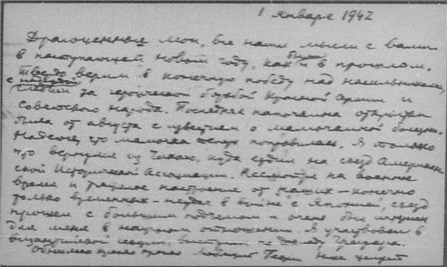 1 января 1942
Драгоценные мои, все наши мысли с вами
в наступающем новом году, как и были в прошлом.
Твердо верим в конечную победу над насильниками,
с надеждой следим за героической борьбой Красной Армии и
Советского народа. Последняя открытка
была от августа с известием о мамочкиной болезни.
Надеюсь, что мамочка поправилась. Я только
что вернулся из Чикаго, куда ездил на съезд Американ-
ской Исторической Ассоциации. Несмотря на военное
время и тяжелое настроение от наших - конечно
только временных - неудач в войне с Японией, съезд
прошел с большим подъемом и очень был
для меня в научном отношении. Я участвовал в
византийской секции,